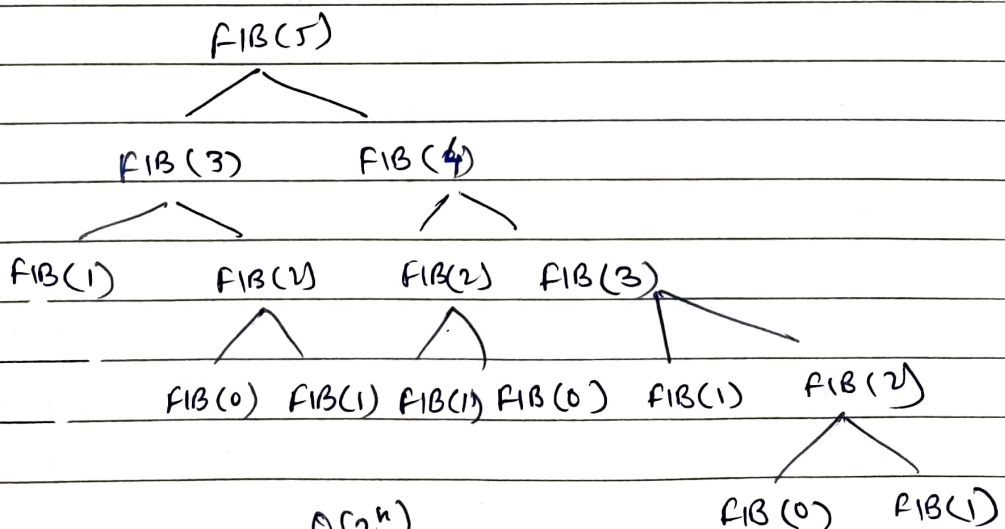 FIB(5)
FIB(3) FIB(4)
FIB(1) FIB(2) FIB(2) FIB(3)
FIB(0) FIB(1) FIB(1) FIB(0) FIB(1) FIB(2)
FIB(0) FIB(1)